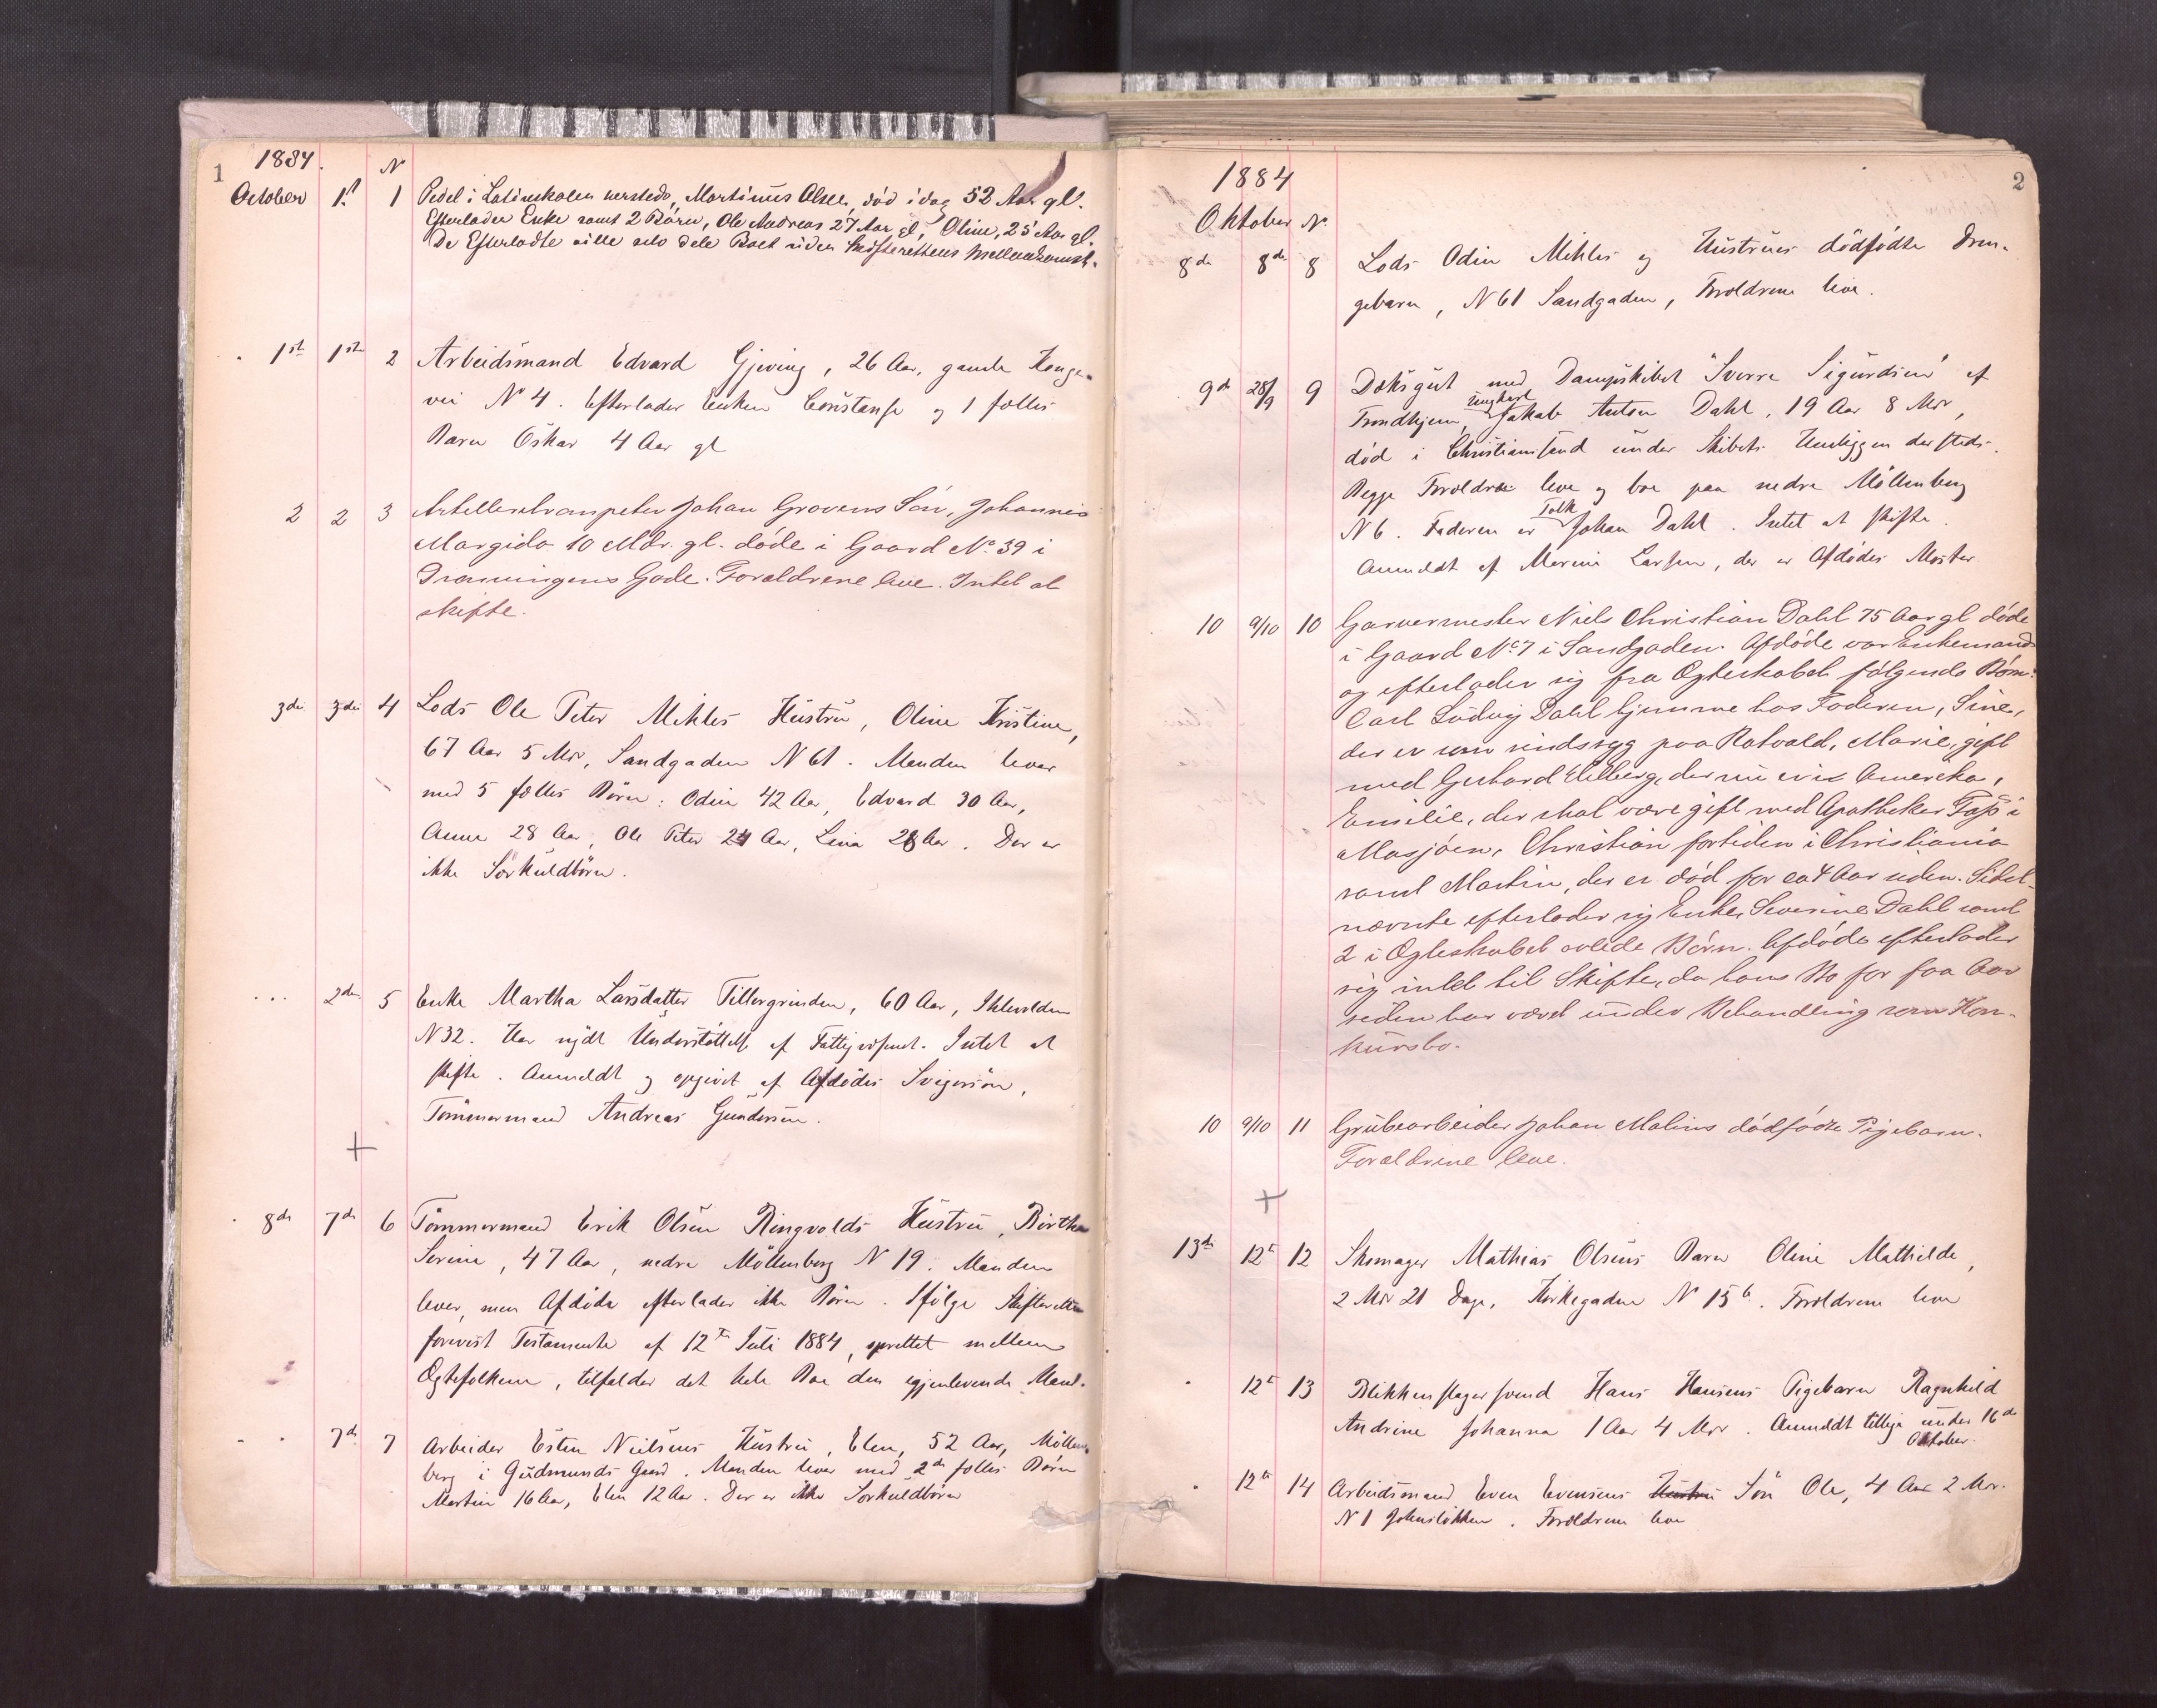 1
1884.
N
October 1st 1 Pedel i Latinskolen hersteds, Martinus Olsen, død idag 52 Aar gl.
Efterlader Enke samt 2 Børn, Ole Andreas 27 Aar gl, Oline, 25 Aar gl.
De Efterladte ville selv dele Boet uden Skifterettens Mellemkomst.
1ste 1ste 2 Arbeidsmand Edvard Gjeving, 26 Aar, gamle Konge-
vei N 4. Efterlader Enken Constanse og 1 fælles
Barn Oskar 4 Aar gl
2 2 3 Artilleritrompeter Johan Grovens Søn, Johannes
Margido 10 Mdr. gl. døde i Gaard No. 39 i
Dronningens Gade. Forældrene leve. Intet at
skifte.
3die 3die 4 Lods Ole Peter Mehles Hustru, Oline Kristine,
67 Aar 5 Mdr, Sandgaden N 61. Manden lever
med 5 fælles Børn: Odin 42 Aar, Edvard 30 Aar,
Anne 28 Aar, Ole Peter 24 Aar, Lina 28 Aar. Der er
ikke Særkuldbørn.
... 2den 5 Enke Martha Larsdatter Tillergrinden, 60 Aar, Ihlevolden
N 32. Har nydt Understøttelse af Fattigvæsenet. Intet at
skifte. Anmeldt og opgivet af Afdødes Svigersøn,
Tømmermand Andreas Gundersen.
+
8de 7de 6 Tømmermand Erik Olsen Ringvolds Hustru, Birthe
Serine, 47 Aar, nedre Møllenberg N 19. Manden
lever, men Afdøde efterlader ikke Børn. Ifølge Skifteretten
forevist Testamente af 12te Juli 1884, oprettet mellem
Ægtefolkene, tilfalder det hele Boe den igjenlevende Mand.
- - 7de 7 Arbeider Esten Nielsens Hustru, Elen, 52 Aar, Møllen-
berg i Gudmunds Gaard. Manden lever med 2de fælles Børn
Martin 16 Aar, Elen 12 Aar. Der er ikke Særkuldbørn
2
1884
Oktober N.
8de 8de 8 Lods Odin Mehles og Hustrues dødfødte Dren-
gebarn, N 61 Sandgaden, Forældrene leve.
9de 28/9 9 Dæksgut med Dampskibet "Sverre Sigurdsen" af
Trondhjem, ungkarl Jakob Anton Dahl, 19 Aar 8 Mdr,
død i Christiansand under Skibets Henliggen dersteds.
Begge Forældre leve og boe paa nedre Møllenberg
N 6. Faderen er Tolk Johan Dahl. Intet at skifte.
Anmeldt af Merine Larsen, der er Afdødes Moster
10 9/10 10 Garvermester Niels Christian Dahl 75 Aar gl døde
i Gaard No. 7 i Sandgaden. Afdøde var Enkemand
og efterlader sig fra Ægteskabet følgende Børn:
Carl Ludvig Dahl hjemme hos Faderen, Sine,
der er som sindssyg paa Rotvold, Marie, gift
med Gerhard Helberg, der nu er i Amerika,
Emilie, der skal være gift med Apotheker Fass i
Mosjøen, Christian fortiden i Christiania
samt Martin, der er død for ca 4 Aar siden. Sidst-
nævnte efterlader sig Enke, Severine Dahl samt
2 i Ægteskabet avlede Børn. Afdøde efterlader
sig intet til Skifte, da hans Bo for faa Aar
siden har været under Behandling som Kon-
kursbo.
10 9/10 11 Grubearbeider Johan Malins dødfødte Pigebarn.
Forældrene leve.
+
13de 12te 12 Skomager Mathias Olsens Barn Oline Mathilde,
2 Mdr 21 Dage, Kirkegaden N 15 b. Forældrene leve
12te 13 Blikkenslagersvend Hans Hansens Pigebarn Ragnhild
Andrine Johanna 1 Aar 4 Mdr. Anmeldt tillige under 16de
Oktober.
12te 14 Arbeidsmand Even Evensens Hustru Søn Ole, 4 Aar 2 Mdr.
N 1 Johnsløkken. Forældrene leve